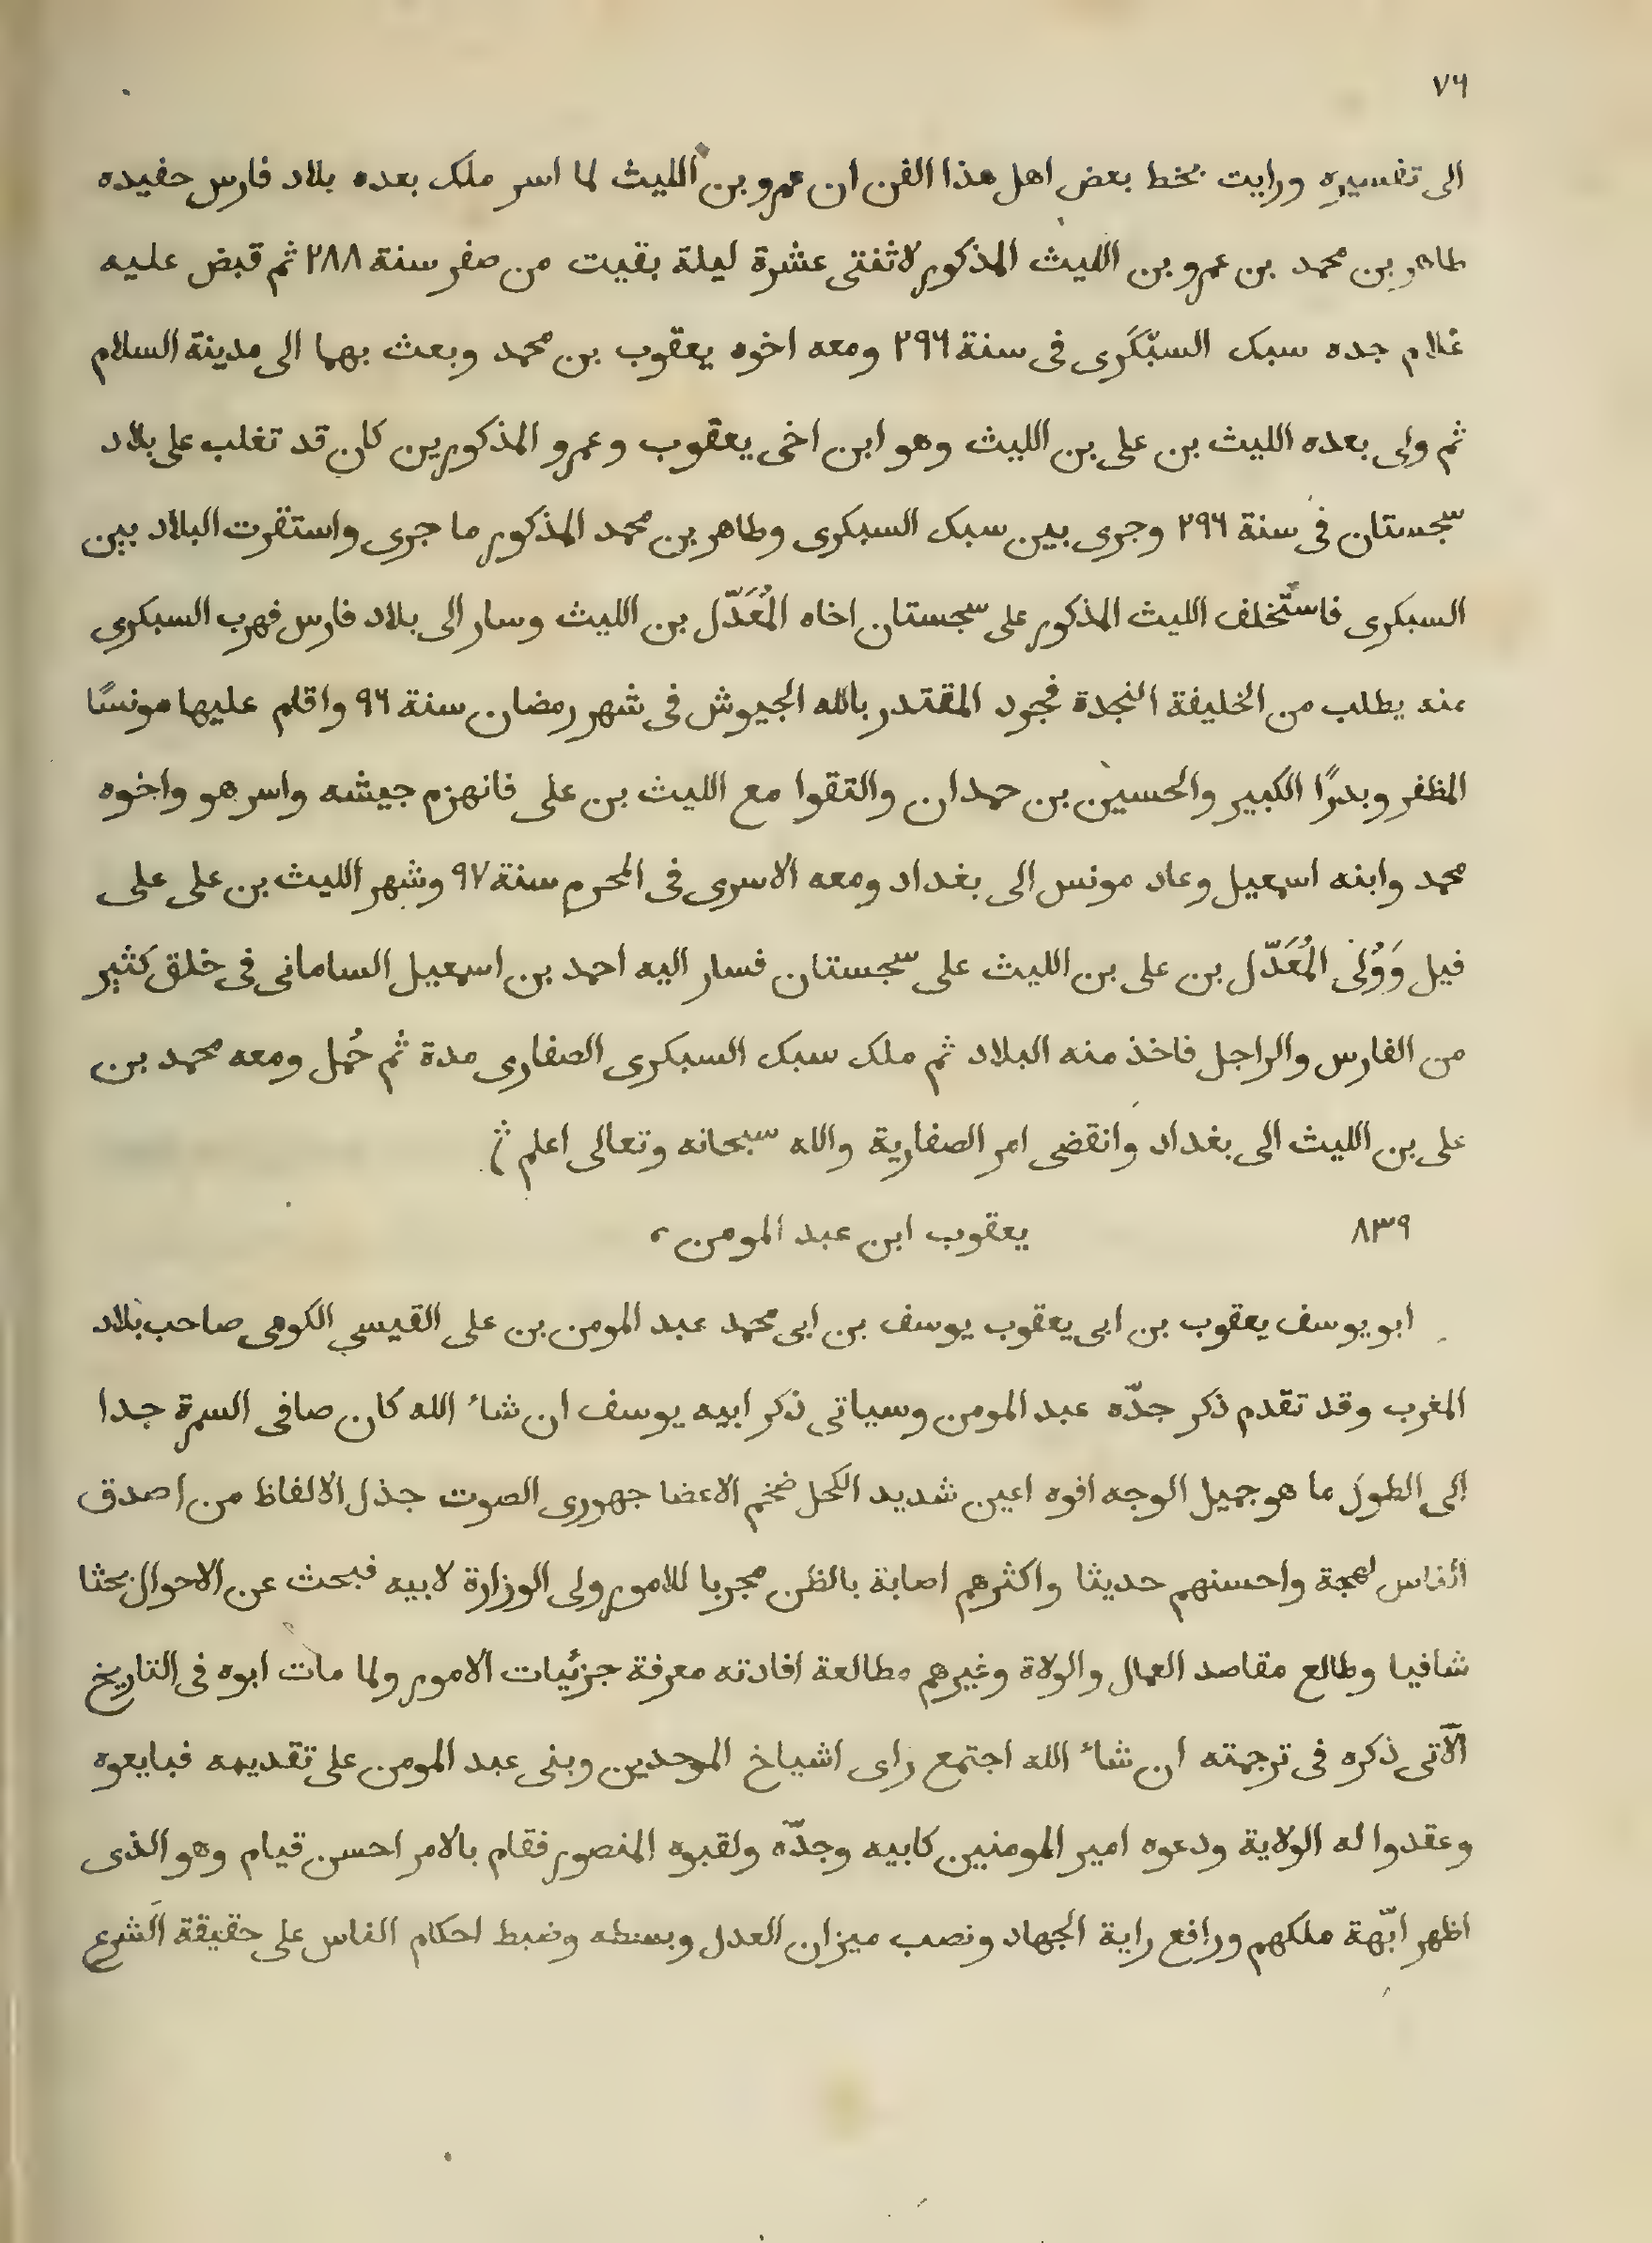 ٧٦
الى تفسيره ورايت بخط بعض اهل هذا الفن ان عمرو بن الليث لما اسر ملك بعده بلاد فارس حفيده
طاهر بن محمد بن عمرو بن الليث المذكور لاثنتى عشرة ليلة بقيت من صفر سنة ٢٨٨ ثم قبض عليه
غلام جده سبك السبّكَرى فى سنة ٢٩٦ ومعه اخوه يعقوب بن محمد وبعث بهما الى مدينة السلام
ثم ولى بعده الليث بن على بن الليث وهو ابن اخى يعقوب وعمرو المذكورين كان قد تغلب على بلاد
سجستان فى سنة ٢٩٦ وجرى بين سبك السبكرى وطاهر بن محمد المذكور ما جرى واستقرت البلاد بين
السبكرى فاستخلف الليث المذكور على سجستان اخاه المُعَدّل بن الليث وسار الى بلاد فارس فهرب السبكرى
منه يطلب من الخليفة النجدة فجود المقتدر بالله الجيوش فى شهر رمضان سنة ٩٦ واقلم عليها مونسًا
المظفر وبدرًا الكبير والحسين بن حمدان والتقوا مع الليث بن على فانهزم جيشه واسر هو واخوه
محمد وابنه اسمعيل وعاد مونس الى بغداد ومعه الاسرى فى المحرم سنة ٩٧ وشهر الليث بن على على
فيل وَوُلى المُعَدّل بن على بن الليث على سجستان فسار اليه احمد بن اسمعيل السامانى فى خلق كثير
من الفارس والراجل فاخذ منه البلاد ثم ملك سبك السبكرى الصفارى مدة ثم حُمل ومعه محمد بن
على بن الليث الى بغداد وانقضى امر الصفارية والله سبحانه وتعالى اعلم
٨٣٩ يعقوب ابن عبد المومن،
ابو يوسف يعقوب بن ابى يعقوب يوسف بن ابى محمد عبد المومن بن على القيسي الكومى صاحب بلاد
المغرب وقد تقدم ذكر جدّه عبد المومن وسياتى ذكر ابيه يوسف ان شاء الله كان صافى السمرة جدا
الى الطول ما هو جميل الوجه افوه اعين شديد الكحل ضخم الاعضا جهورى الصوت جذل الالفاظ من اصدق
الناس لهجة واحسنهم حديثا واكثرهم اصابة بالظن مجربا للامور ولى الوزارة لابيه فبحث عن الاحوال بحثا
شافيا وطالع مقاصد العمال والولاة وغيرهم مطالعة افادته معرفة جزئيات الامور ولما مات ابوه فى التاريخ
الآتى ذكره فى ترجمته ان شاء الله اجتمع راى اشياخ الموحدين وبنى عبد المومن على تقديمه فبايعوه
وعقدوا له الولاية ودعوه امير المومنين كابيه وجدّه ولقبوه المنصور فقام بالامر احسن قيام وهو الذى
اظهر ابّهة ملكهم ورافع راية الجهاد ونصب ميزان العدل وبسطه وضبط احكام الناس على حقيقة الشرع